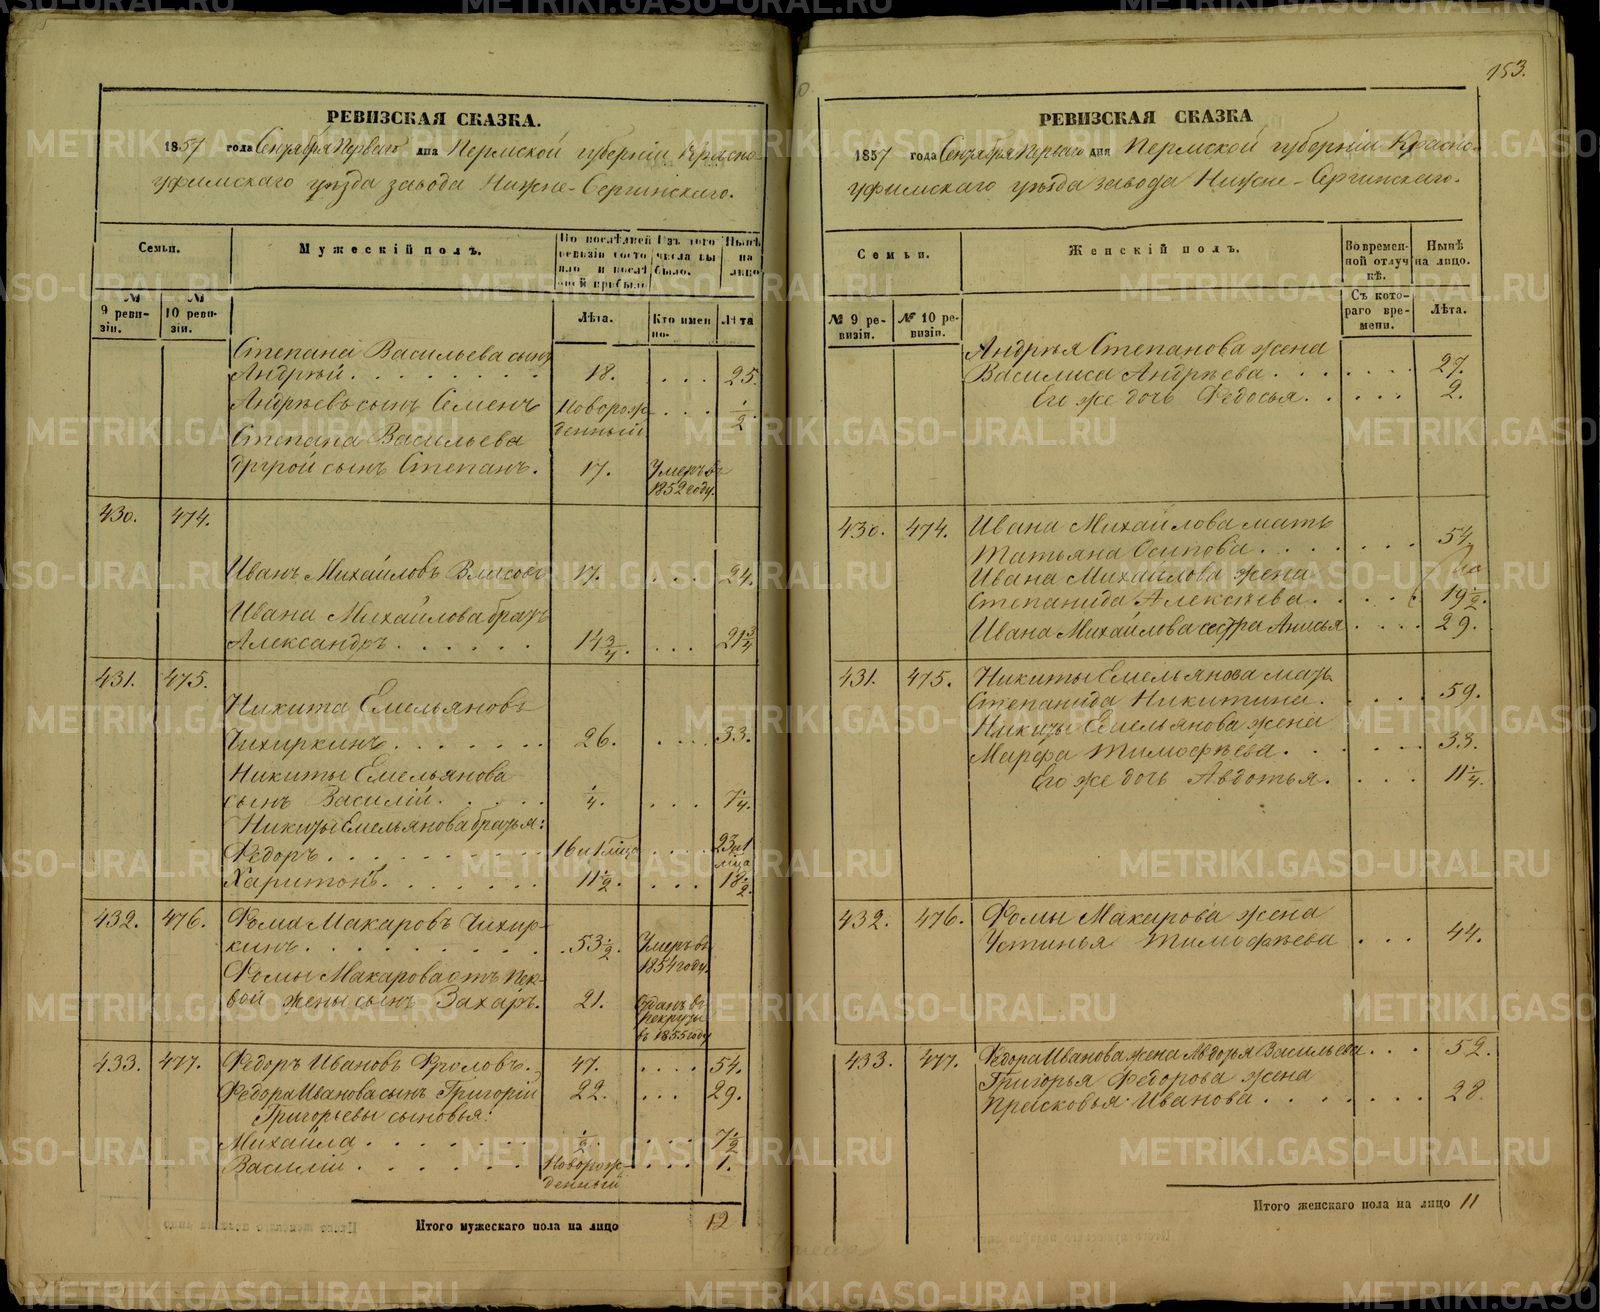 153.
РЕВИЗСКАЯ СКАЗКА.
1857 года Сентября Перваго дня Пермской губерніи Красно-
уфимскаго уѣзда завода Нижне-Сергинскаго.
Семьи.
Мужескій полъ.
По послѣдней ревизіи состояло и послѣ оной прибыло
Изъ того числа выбыло.
Нынѣ на лицо
№ 9 ревизіи.
№ 10 ревизіи.
Лѣта.
Кто именно.
Лѣта
Степана Васильева сынъ
Андрѣй. 18. 25.
Андрѣевъ сынъ Семенъ Новорожденный 1/2
Степана Васильева
другой сынъ Степанъ. 17. Умеръ въ 1852 году.
430. 474.
Иванъ Михайловъ Власовъ 17. 24.
Ивана Михайлова братъ
Александръ. 14 3/4. 21 3/4
431. 475.
Никита Емельяновъ
Чихиркинъ. 26. 33.
Никиты Емельянова
сынъ Василій. 1/4. 7 1/4.
Никиты Емельянова братья:
Ѳедоръ. 16 и 1 мѣсца 23 и 1 мѣсца
Харитонъ. 11 1/2. 18 1/2.
432. 476. Ѳома Макаровъ Чихир-
кинъ. 53 1/2. Умеръ въ 1854 году.
Ѳомы Макарова отъ пер-
вой жены сынъ Захаръ. 21. Отданъ въ рекруты въ 1855 году
433. 477. Ѳедоръ Ивановъ Фроловъ. 47. 54.
Ѳедора Иванова сынъ Григорій 22. 29.
Григорьевы сыновья:
Михайла 1/2. 7 1/2
Василій. Новорожденный 1.
Итого мужескаго пола на лицо 12
РЕВИЗСКАЯ СКАЗКА
1857 года Сентября Перваго дня Пермской губерніи Красно-
уфимскаго уѣзда завода Нижне-Сергинскаго.
Семьи.
Женскій полъ.
Во временной отлучкѣ.
Нынѣ на лицо.
№ 9 ревизіи.
№ 10 ревизіи.
Съ котораго времени.
Лѣта.
Андрѣя Степанова жена
Василиса Андрѣева. 27.
Его же дочь Ѳедосья. 2.
430. 474. Ивана Михайлова мать
Татьяна Осипова. 54
Ивана Михайлова жена
Степанида Алексѣева. 19 1/2.
Ивана Михайлова сестра Анисья 29.
431. 475. Никиты Емельянова мать
Степанида Никитина. 59.
Никиты Емельянова жена
Марфа Тимофѣева. 33.
Его же дочь Авдотья. 11 1/4.
432. 476. Ѳомы Макарова жена
Устинья Тимофѣева 44.
433. 477. Ѳедора Иванова жена Авдотья Васильева 52.
Григорья Ѳедорова жена
Прасковья Иванова. 28.
Итого женскаго пола на лицо 11
METRIKI.GASO-URAL.RU